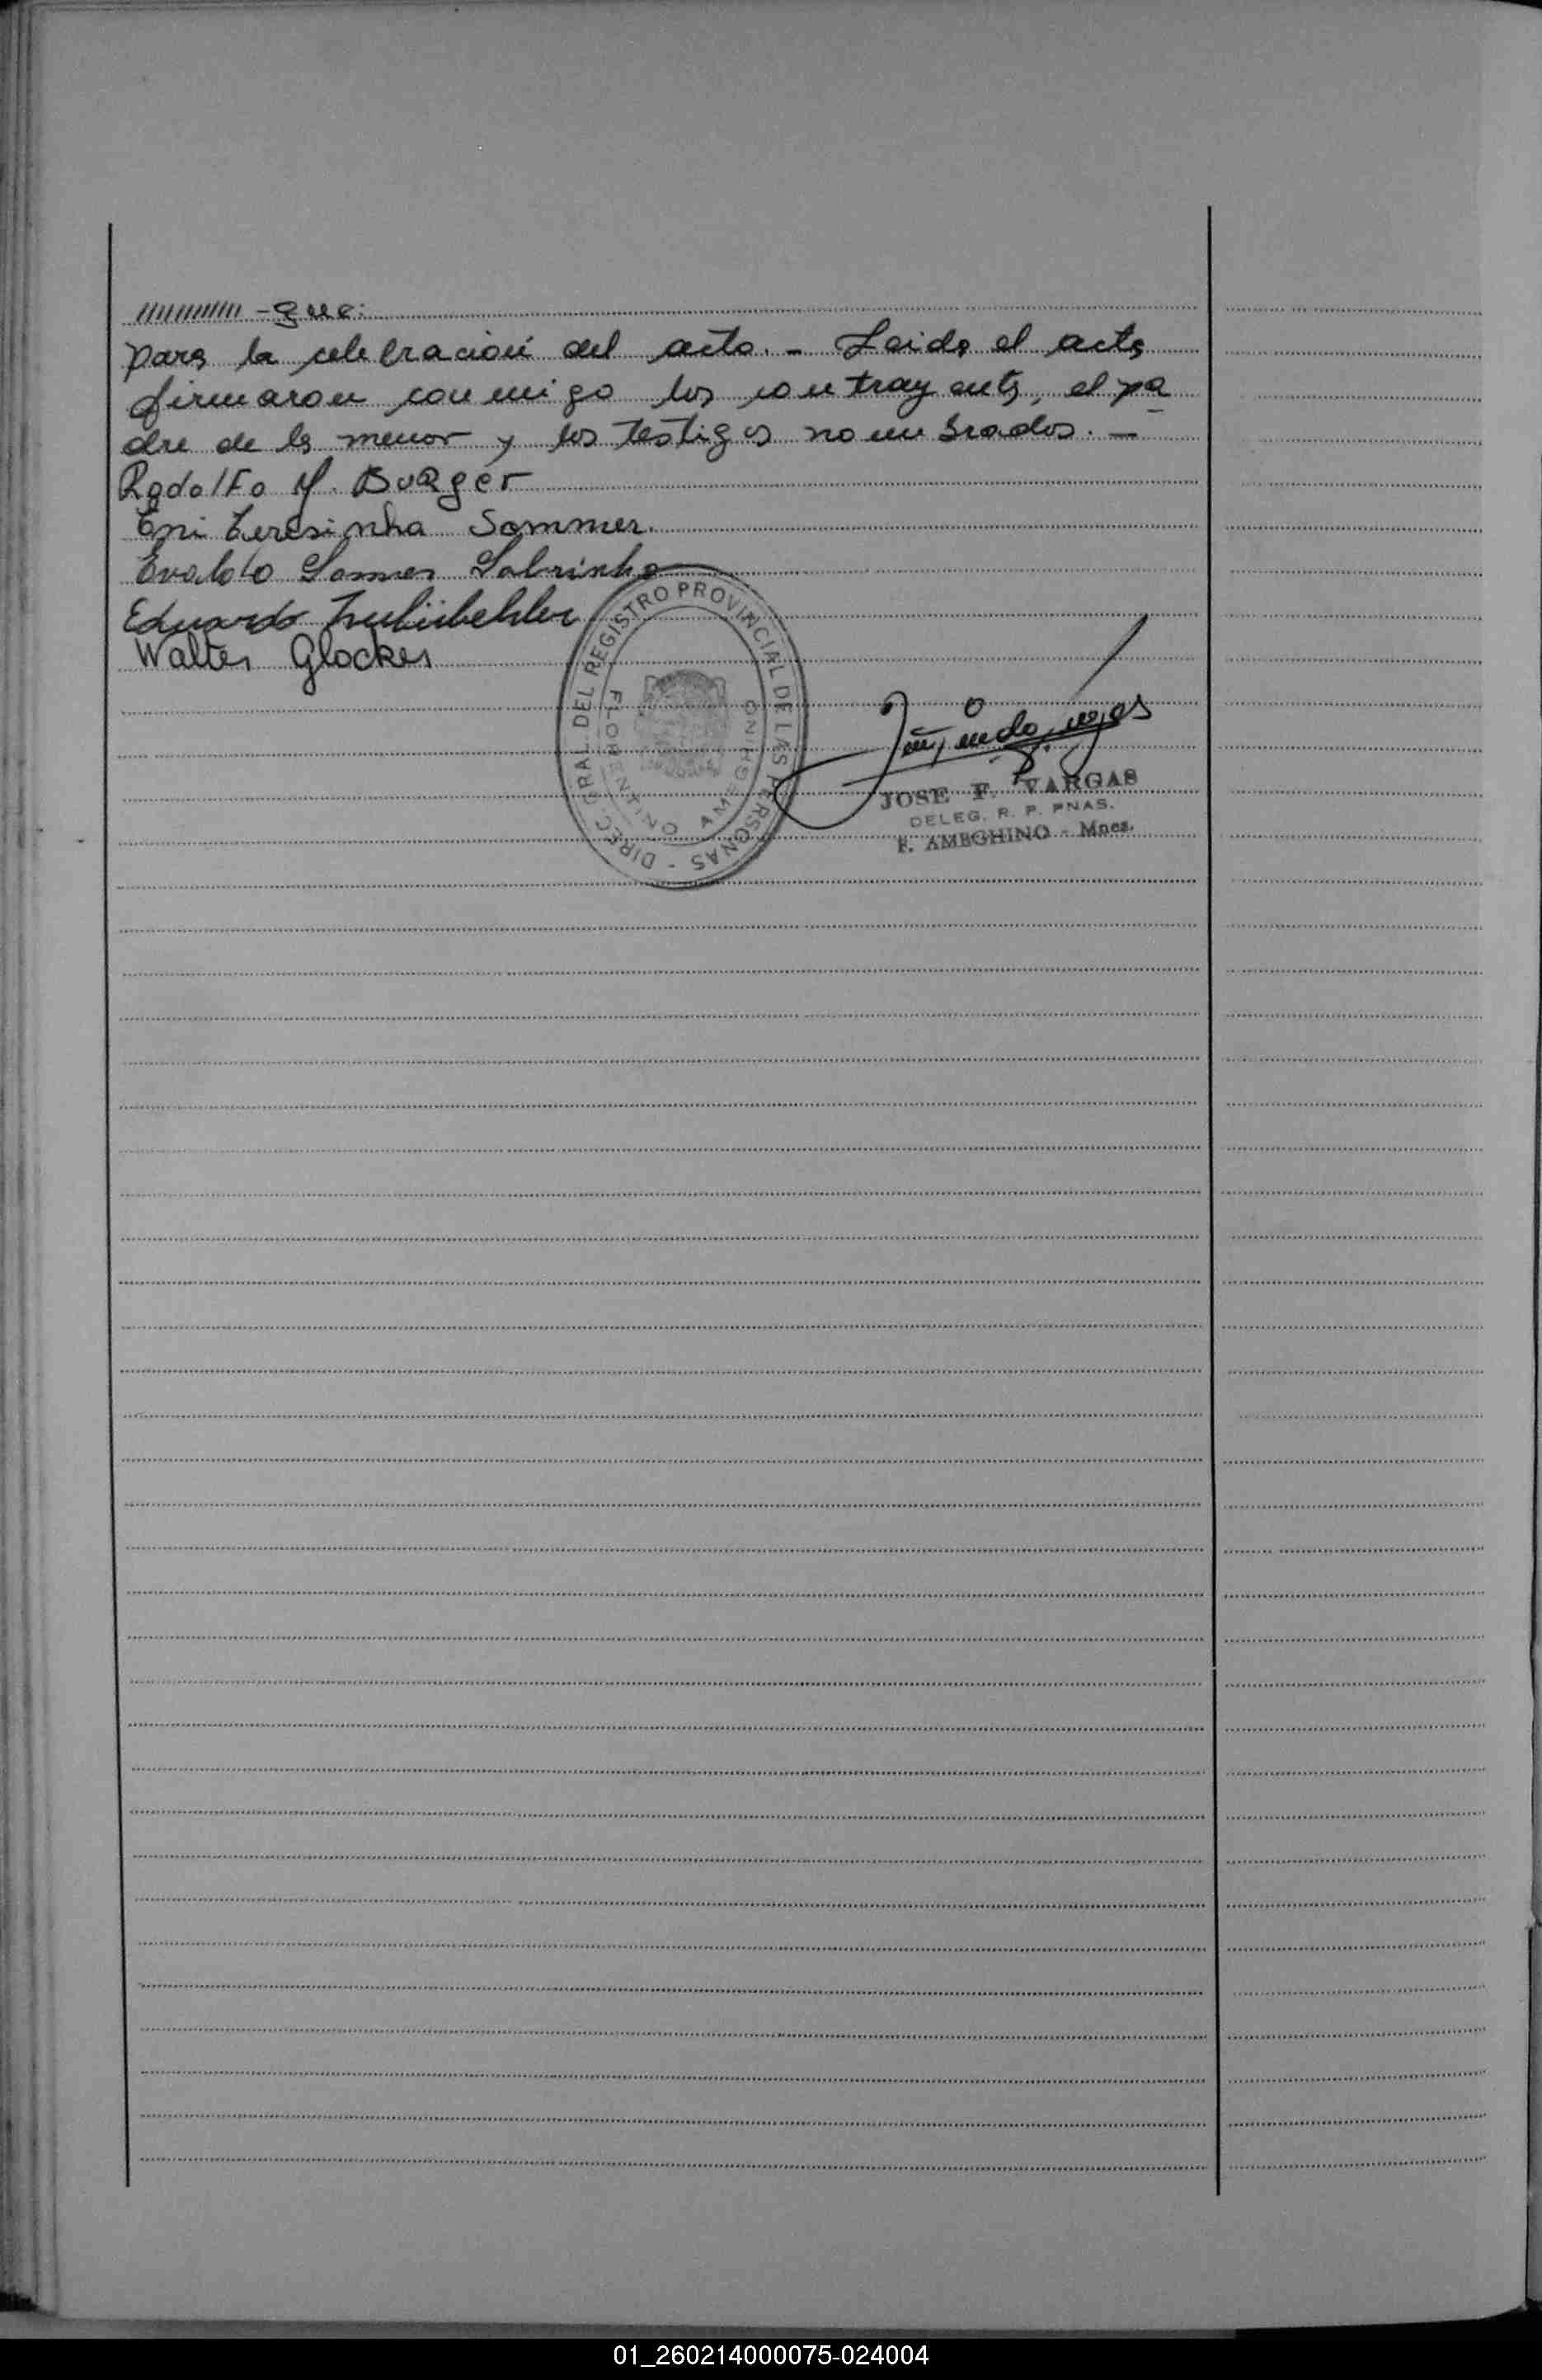 ////////// -que:
para la celebración del acto. - Leida el acta
firmaron conmigo los contrayentes, el pa
dre de la menor y los testigos nombrados. -
Rodolfo M. Burger
Eni Teresinha Sommer.
Evaldo Sommer Sobrinho
Eduardo
Walter Glocker
DIREC. GRAL. DEL REGISTRO PROVINCIAL DE LAS PERSONAS -
FLORENTINO AMEGHINO
JOSE F. VARGAS
DELEG. R. P. PNAS.
F. AMEGHINO - Mnes.
01_260214000075-024004